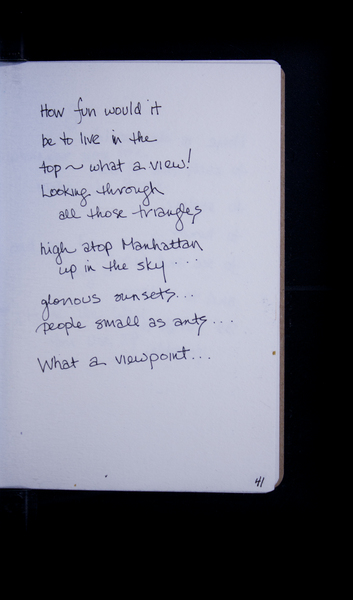 How fun would it
be to live in the
top ~ what a view!
Looking through
all those triangles
high atop Manhattan
up in the sky...
glorious sunsets...
people small as ants...
What a viewpoint...
41